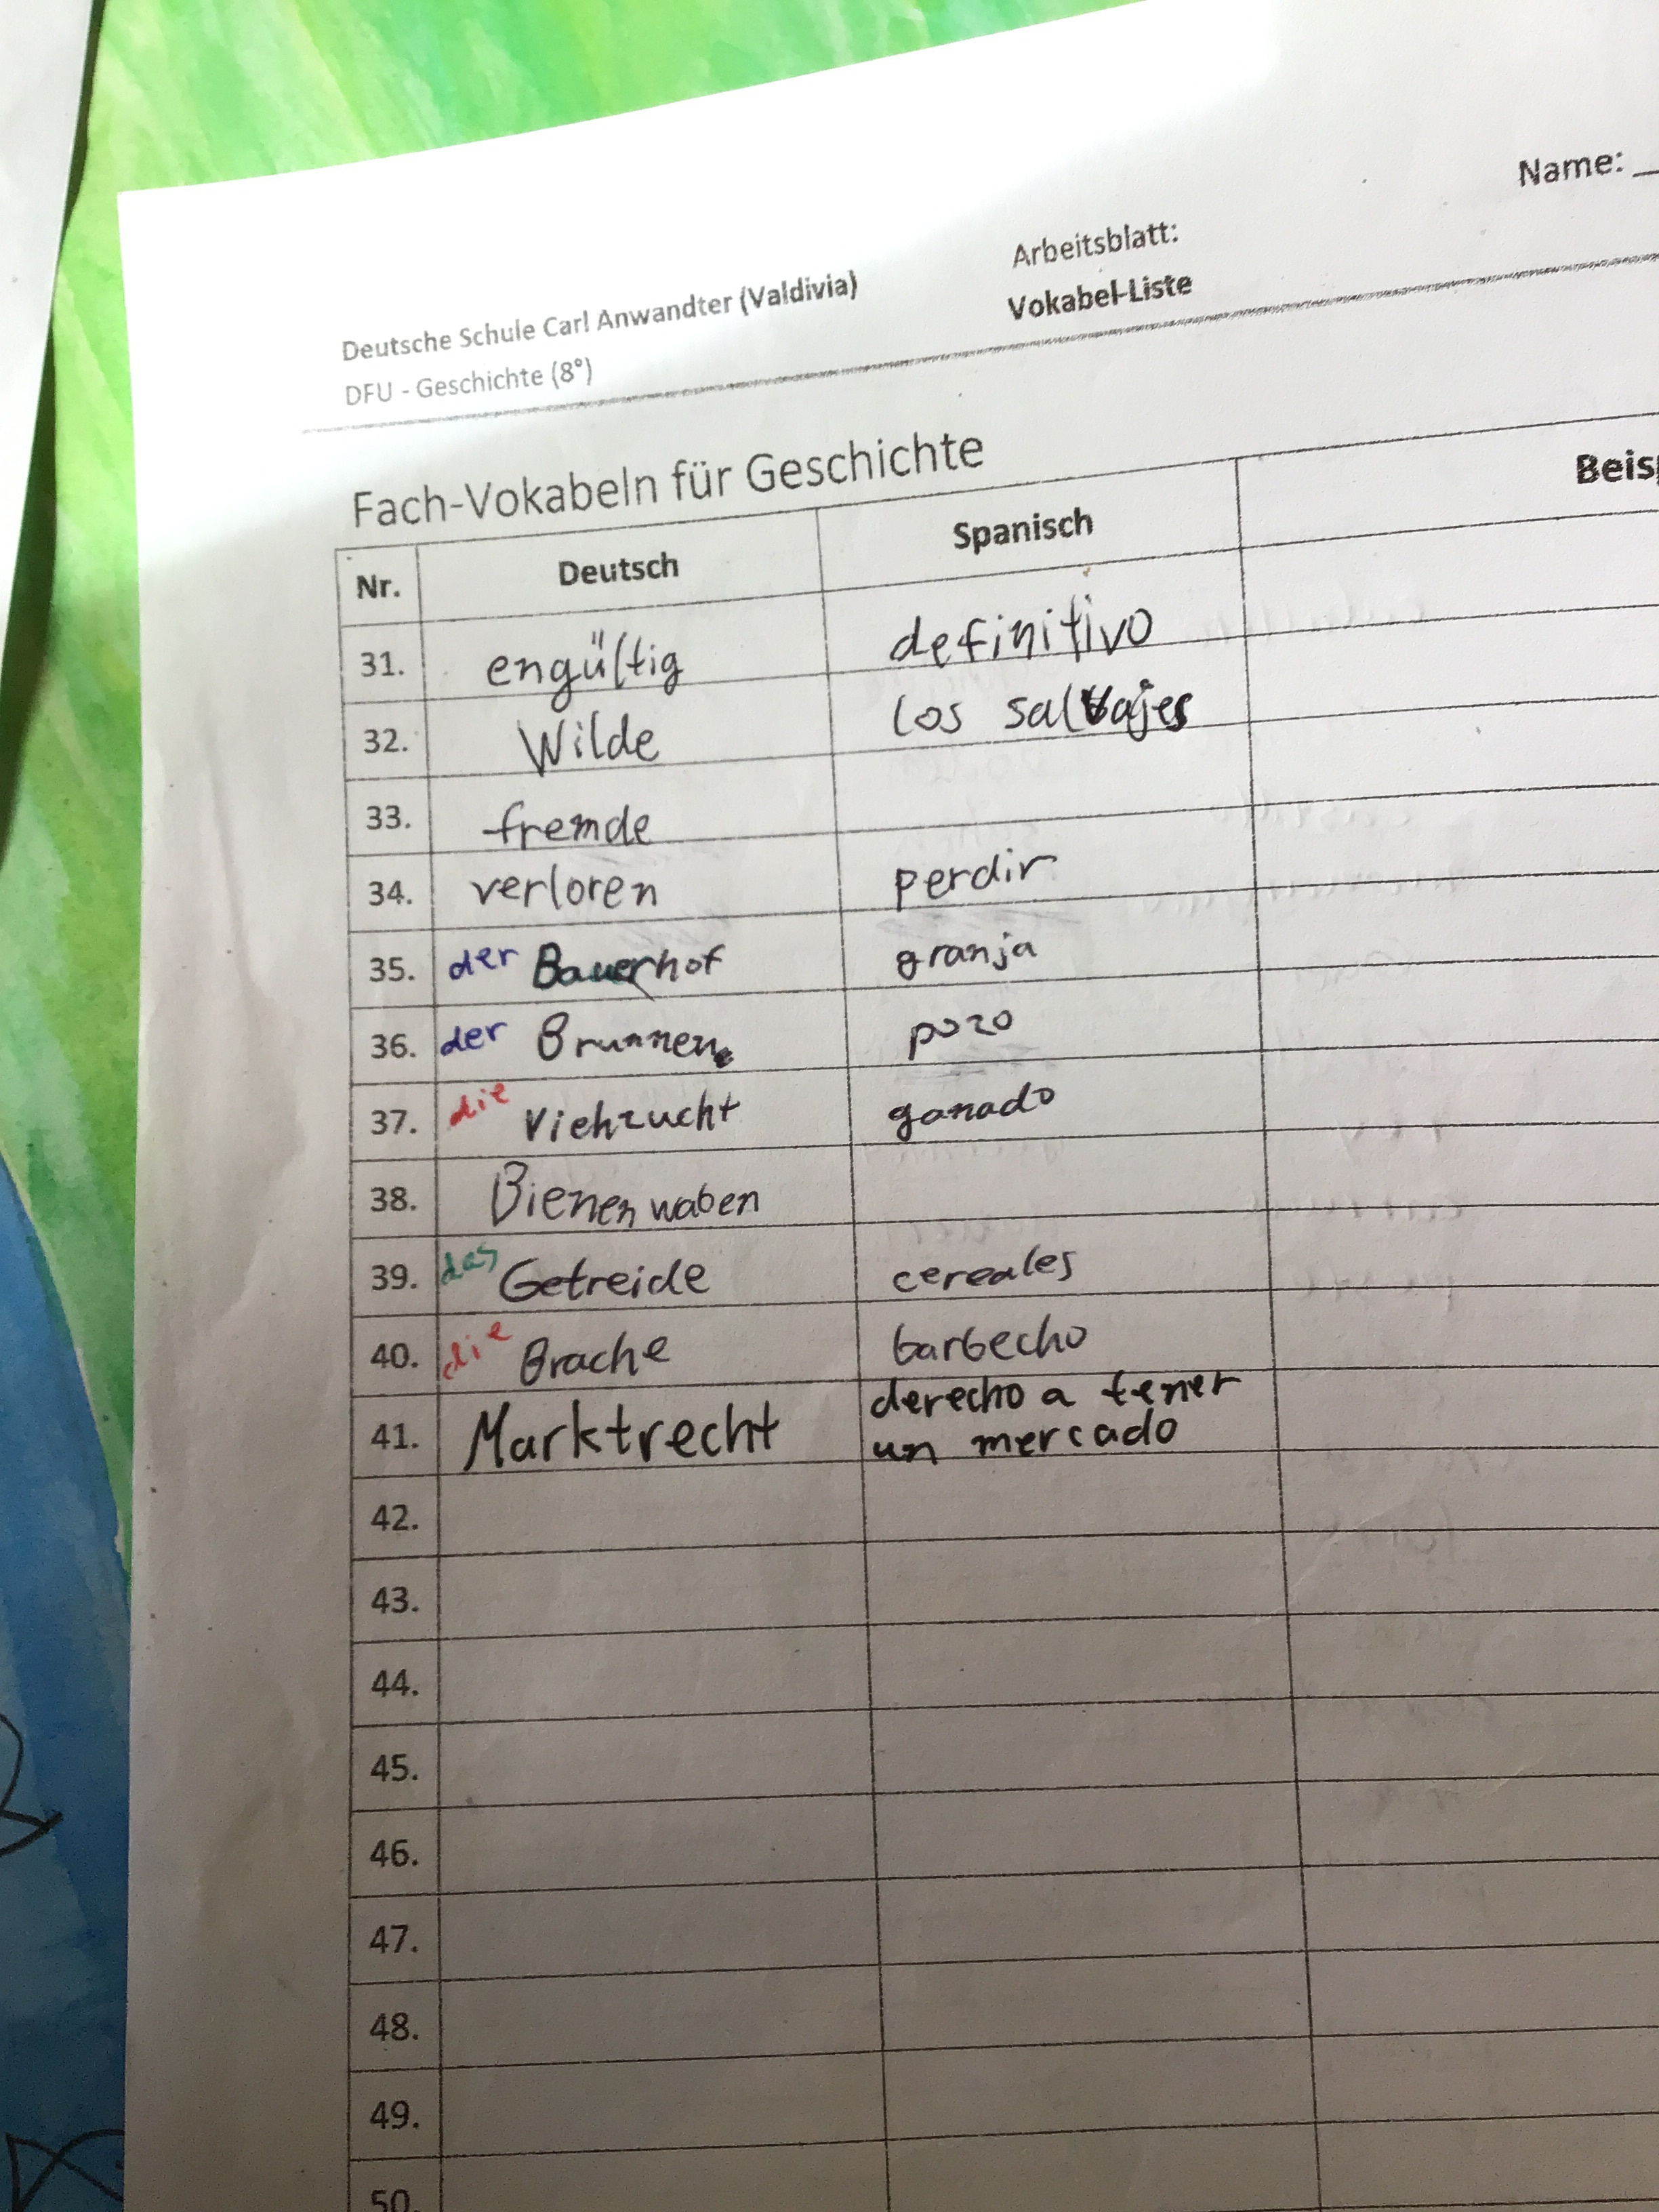 Name:
Arbeitsblatt:
Deutsche Schule Carl Anwandter (Valdivia)
Vokabel-Liste
DFU - Geschichte (8°)
Fach-Vokabeln für Geschichte
Nr. Deutsch Spanisch Beisp
31. engültig definitivo
32. Wilde los salvajes
33. fremde
34. verloren perdir
35. der Bauerhof granja
36. der Brunnen pozo
37. die Viehzucht ganado
38. Bienenwaben
39. das Getreide cereales
40. die Brache barbecho
41. Marktrecht derecho a tener
un mercado
42.
43.
44.
45.
46.
47.
48.
49.
50.